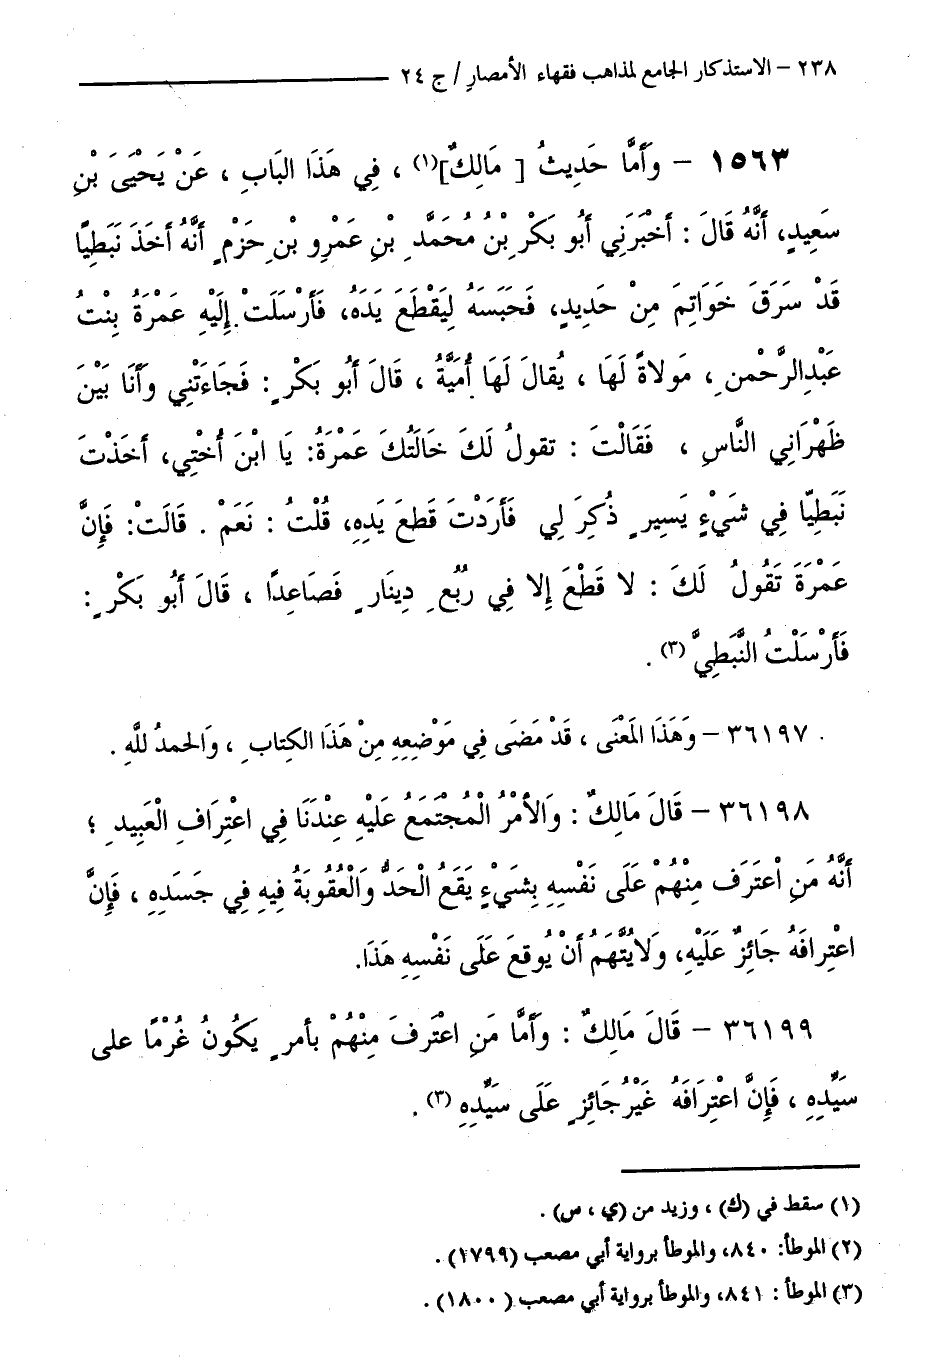 ٢٣٨ – الاستذكار الجامع لمذاهب فقهاء الأمصارِ / ج ٢٤
١٥٦٣ – وَأَمَّا حَدِيثُ [ مَالِكٌ](١) ، فِي هَذَا البَابِ ، عَنْ يَحْيَىَ بْنِ
سَعِيدٍ، أَنَّهُ قَالَ : أَخْبَرَنِي أَبُو بَكْرِ بْنُ مُحَمَّدِ بْنِ عَمْرِو بْنِ حَزْمٍ أَنَّهُ أَخَذَ نَبَطِيًا
قَدْ سَرَقَ خَوَاتِمَ مِنْ حَدِيدٍ، فَحَبَسَهُ لِيَقْطَعَ يَدَهُ، فَأَرْسَلَتْ إِلَيْهِ عَمْرَةُ بِنْتُ
عَبْدِالرَّحْمنِ ، مَولاةً لَهَا ، يُقالَ لَهَا أُمَيَّةُ ، قَالَ أَبُو بَكْرٍ : فَجَاءَتْنِي وَأَنَا بَيْنَ
ظَهْرَانِي النَّاسِ ، فَقَالَتْ : تقولُ لَكَ خَالَتُكَ عَمْرَةُ: يَا ابْنَ أُخْتِي، أَخَذْتَ
نَبَطِيّا فِي شَيْءٍ يَسِيرٍ ذُكِرَ لِي فَأَرَدْتَ قَطعَ يَدِهِ، قُلْتُ : نَعَمْ . قَالَتْ: فَإِنَّ
عَمْرَةَ تَقُولُ لَكَ : لا قَطْعَ إِلا فِي رُبُعِ دِينَارٍ فَصَاعِدًا ، قَالَ أَبُو بَكْرٍ :
فَأَرْسَلْتُ النَّبَطِيَّ (٣) .
٣٦١٩٧ – وَهَذَا المَعْنَى ، قَدْ مَضَى فِي مَوْضِعِهِ مِنْ هَذَا الكِتابِ ، وَالحمدُ للَّهِ .
٣٦١٩٨ – قَالَ مَالِكٌ : وَالأمْرُ الْمُجْتَمَعُ عَلَيْهِ عِنْدَنَا فِي اعْتِرَافِ الْعَبِيدِ ؛
أَنَّهُ مَنِ اعْتَرَف مِنْهُمْ عَلَى نَفْسِهِ بِشَيْءٍ يَقَعُ الْحَدُّ وَالْعُقُوبَةُ فِيهِ فِي جَسَدِهِ ، فَإِنَّ
اعْتِرافَهُ جَائِزٌ عَلَيْهِ، وَلايُتَّهَمُ أَنْ يُوقِعَ عَلَى نَفْسِهِ هَذَا.
٣٦١٩٩ – قَالَ مَالِكٌ : وَأَمَّا مَنِ اعْتَرفَ مِنْهُمْ بأمرٍ يَكُونُ غُرْمًا على
سَيِّدِهِ ، فَإِنَّ اعْتِرَافَهُ غَيْرُ جَائِزٍ عَلَى سَيِّدِهِ (٣) .
(١) سقط في (ك) ، وزيد من (ي ، س) .
(٢) الموطأ: ٨٤٠، والموطأ برواية أبي مصعب (١٧٩٩) .
(٣) الموطأ : ٨٤١، والموطأ برواية أبي مصعب ( ١٨٠٠) .